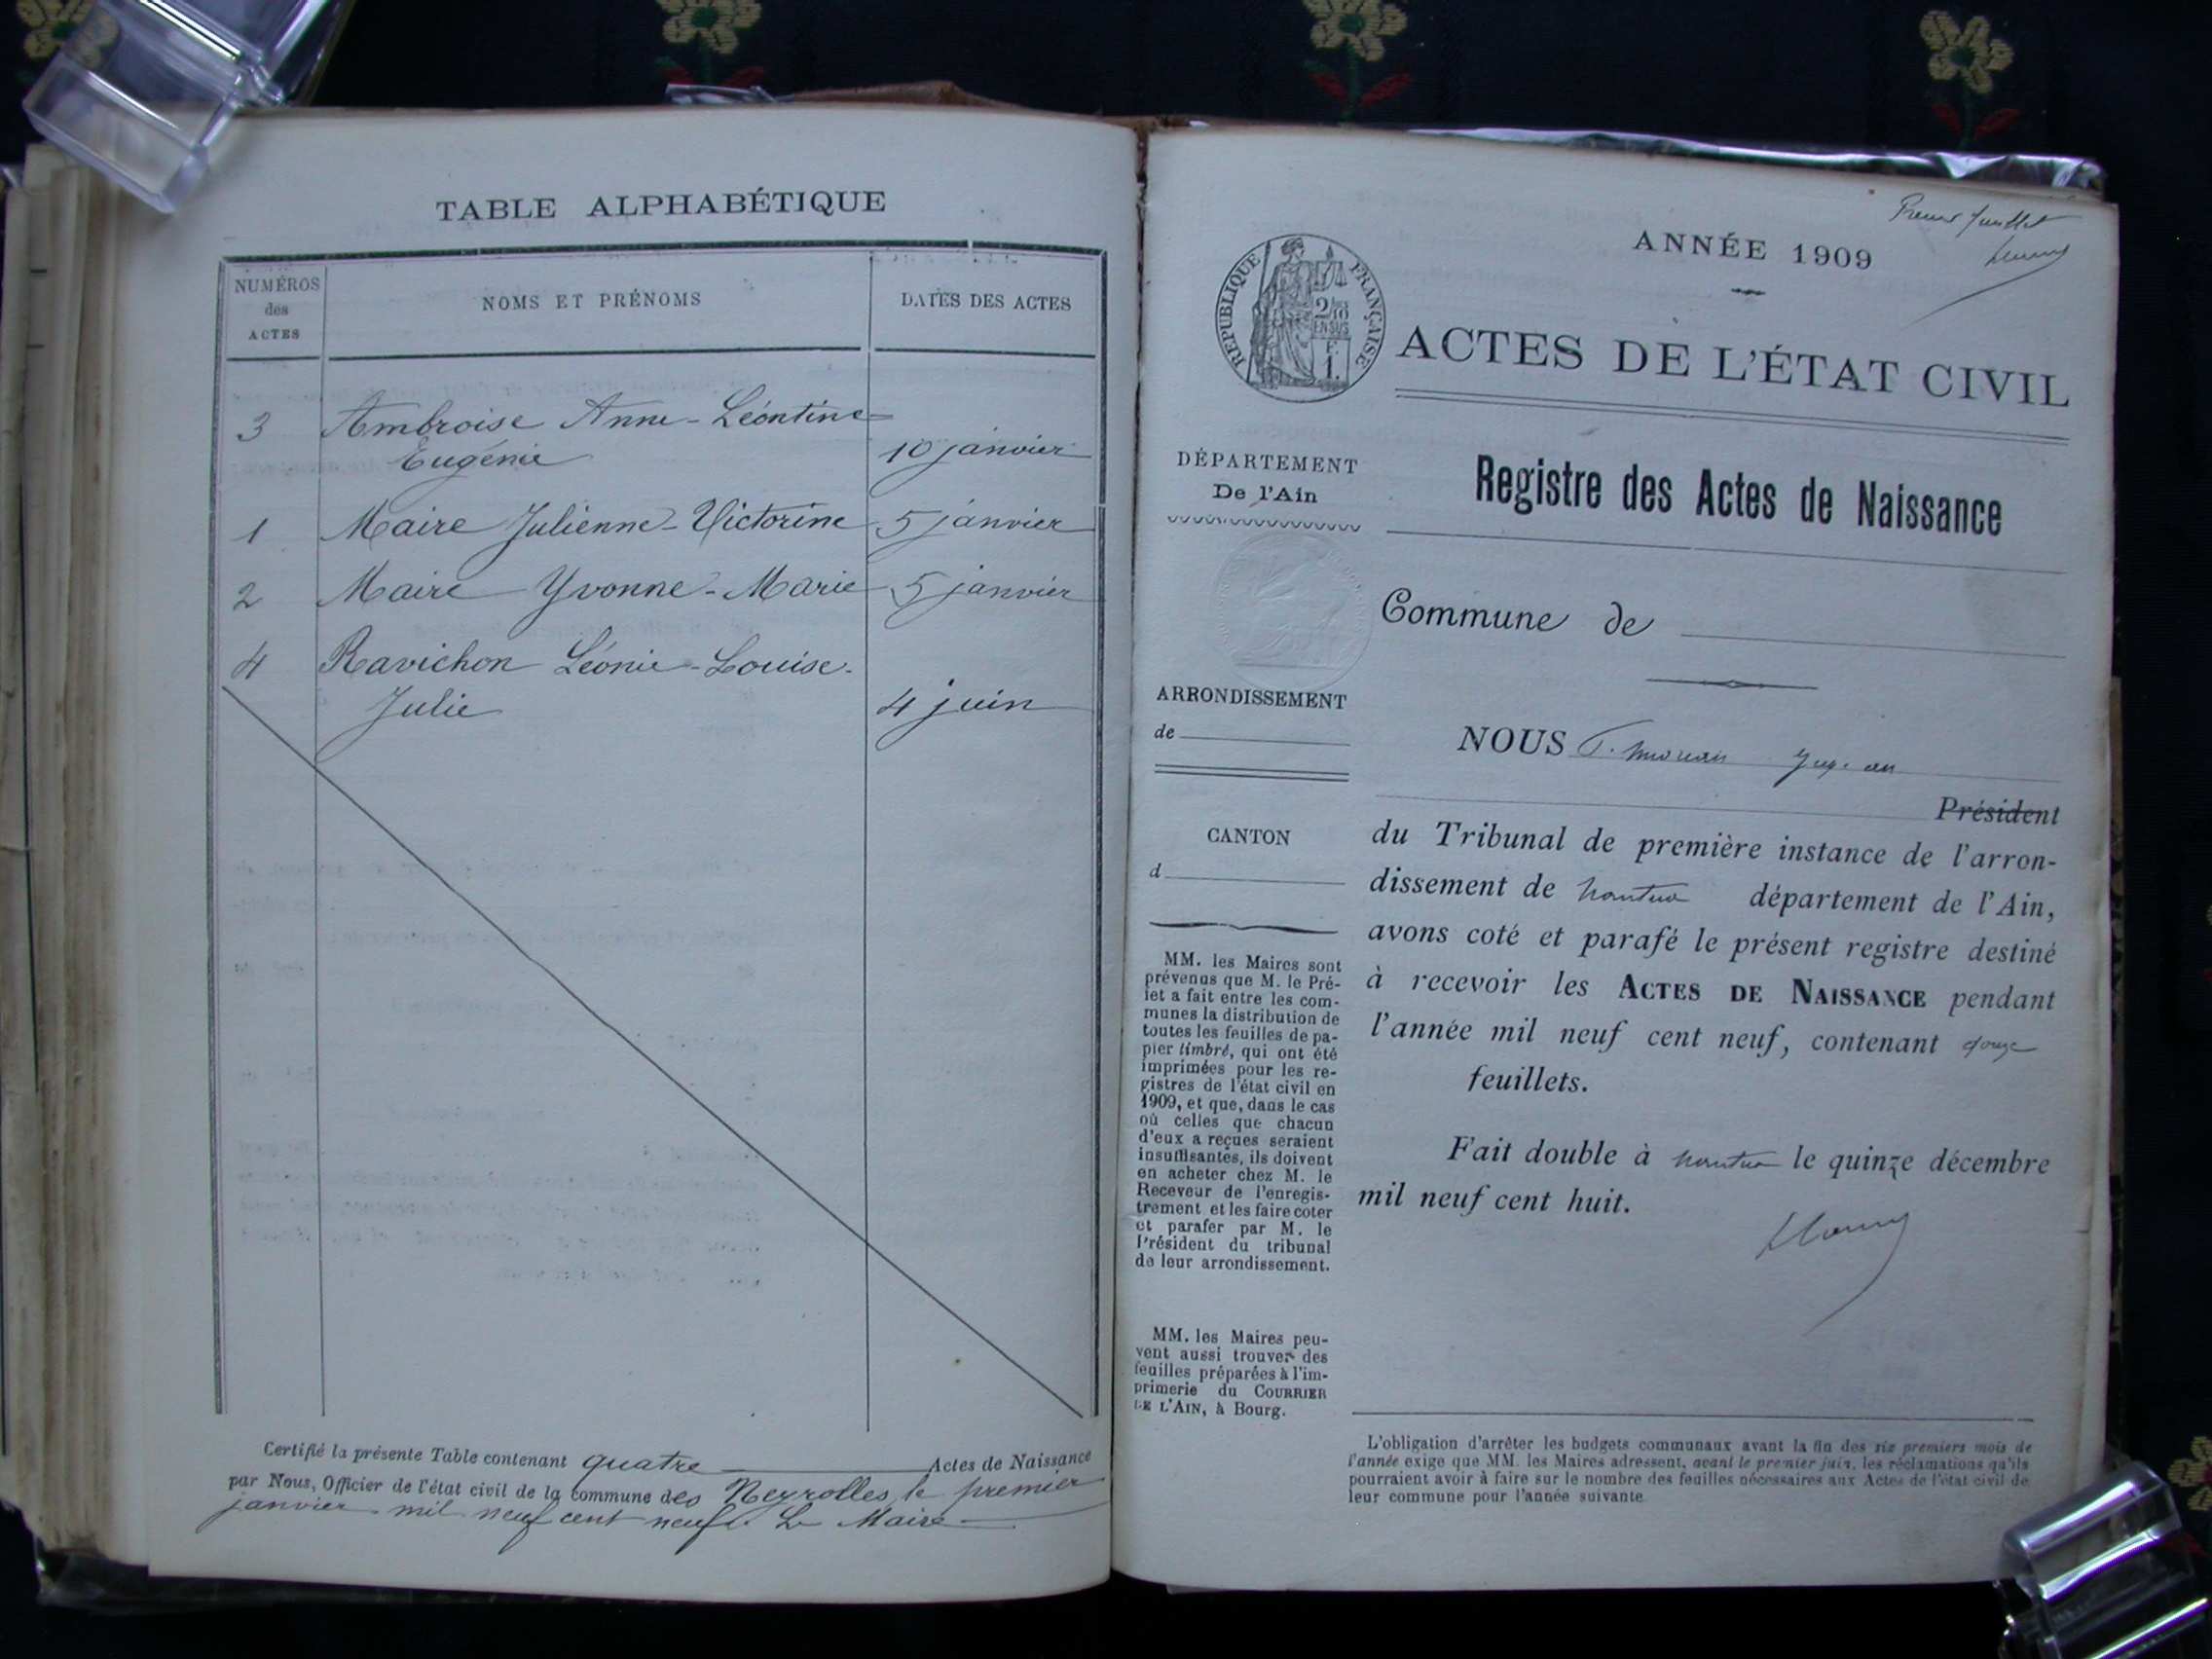 TABLE ALPHABÉTIQUE
NUMÉROS
des
ACTES
NOMS ET PRÉNOMS
DATES DES ACTES
3 Ambroise Anne-Léontine
Eugénie 10 janvier
1 Maire Julienne-Victorine 5 janvier
2 Maire Yvonne-Marie 5 janvier
4 Ravichon Léonie-Louise-
Julie 4 juin
Certifié la présente Table contenant quatre Actes de Naissance
par Nous, Officier de l'état civil de la commune des Neyrolles le premier
janvier mil neuf cent neuf. Le Maire
Premier feuillet
ANNÉE 1909
RÉPUBLIQUE FRANÇAISE
2/10
EN SUS
F.
1.
ACTES DE L'ÉTAT CIVIL
DÉPARTEMENT
De l'Ain
Registre des Actes de Naissance
Commune de
ARRONDISSEMENT
de
NOUS
Président
CANTON
d
du Tribunal de première instance de l'arron-
dissement de Nantua département de l'Ain,
avons coté et parafé le présent registre destiné
à recevoir les ACTES DE NAISSANCE pendant
l'année mil neuf cent neuf, contenant douze
feuillets.
Fait double à Nantua le quinze décembre
mil neuf cent huit.
MM. les Maires sont
prévenus que M. le Pré-
fet a fait entre les com-
munes la distribution de
toutes les feuilles de pa-
pier timbré, qui ont été
imprimées pour les re-
gistres de l'état civil en
1909, et que, dans le cas
où celles que chacun
d'eux a reçues seraient
insuffisantes, ils doivent
en acheter chez M. le
Receveur de l'enregis-
trement et les faire coter
et parafer par M. le
Président du tribunal
de leur arrondissement.
MM. les Maires peu-
vent aussi trouver des
feuilles préparées à l'im-
primerie du COURRIER
DE L'AIN, à Bourg.
L'obligation d'arrêter les budgets communaux avant la fin des six premiers mois de
l'année exige que MM. les Maires adressent, avant le premier juin, les réclamations qu'ils
pourraient avoir à faire sur le nombre des feuilles nécessaires aux Actes de l'état civil de
leur commune pour l'année suivante